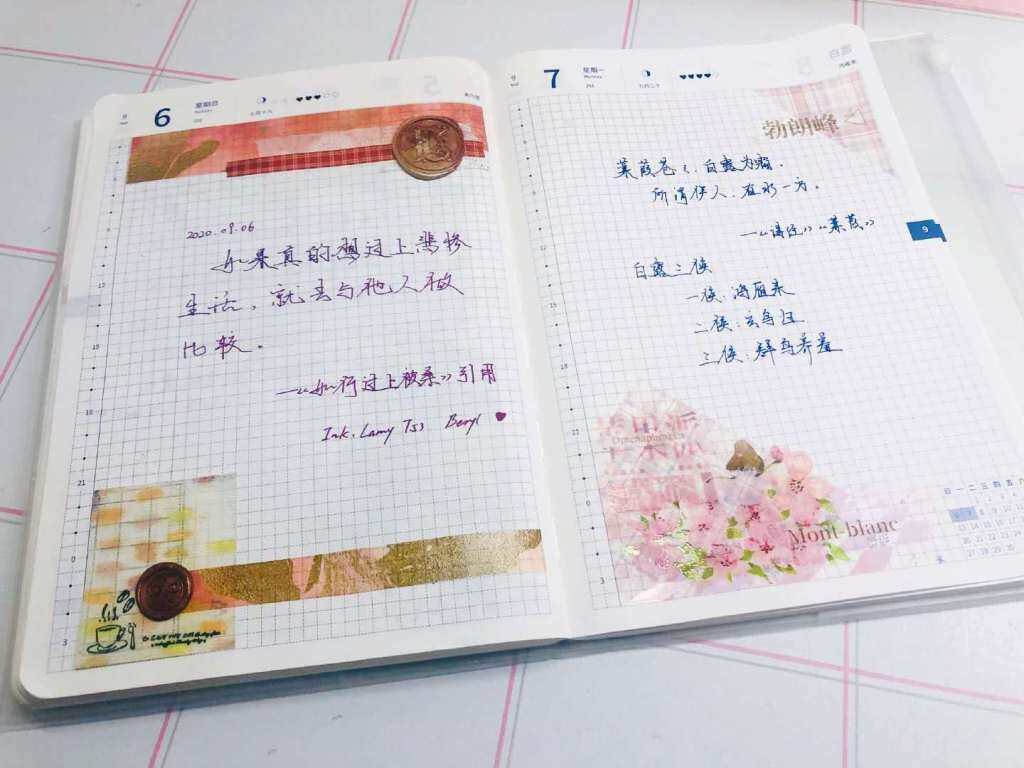 6
星期日
2020.09.06
如果真的想过上悲惨
生活，就去与他人做
比较.
—《如何过上被杀》引用
Ink. Lamy T53 Beryl
7
星期一
勃朗峰
蒹葭苍々.白露为霜.
所谓伊人.在水一方。
—《诗经》《蒹葭》
9
白露三候
一候:鸿雁来
二候:玄鸟归
三候:群鸟养羞
Mont-blanc
日一二三四五六